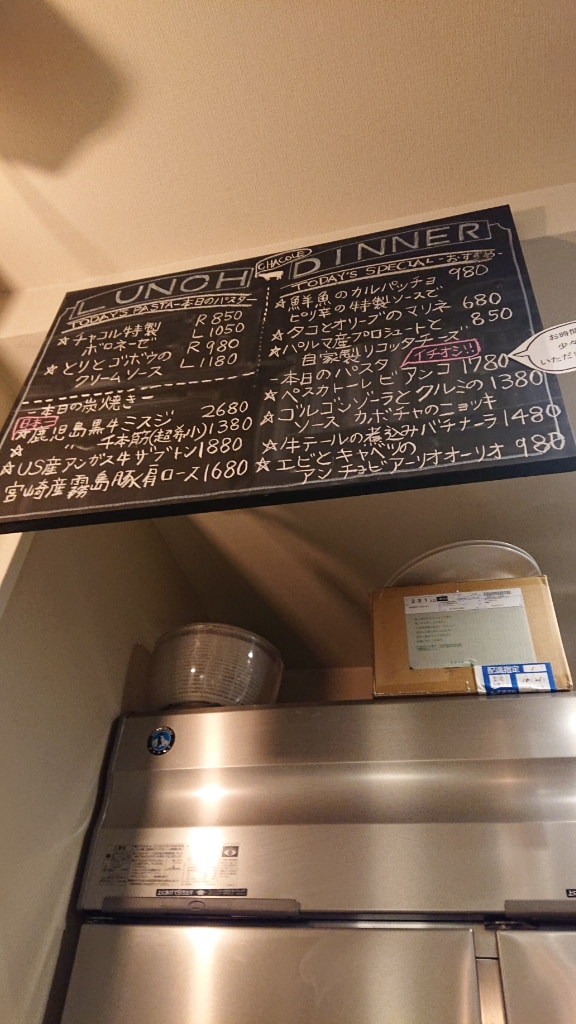 LUNCH
TODAY'S PASTA-本日のパスタ-
☆チャコル特製 R 850
ボロネーゼ L 1050
☆とりとゴボウの R 980
クリームソース L 1180
-本日の炭焼き-
☆鹿児島黒牛ミスジ 2680
☆ 〃 千本筋(超希少) 1380
☆US産アンガス牛サブトン 1880
宮崎産霧島豚肩ロース 1680
CHACOLE
DINNER
TODAY'S SPECIAL-おすすめ-
☆鮮魚のカルパッチョ 980
ピリ辛の特製ソースで
☆タコとオリーブのマリネ 680
☆パルマ産プロシュートと 850
自家製リコッタチーズ
イチオシ!!
-本日のパスタ-
☆ペスカトーレ ビアンコ 1780
☆ゴルゴンゾーラとクルミの 1380
ソース カボチャのニョッキ
☆牛テールの煮込みバチナーラ 1480
☆エビとキャベツの 980
アンチョビアーリオオーリオ
お時間
少々
いただ
配達指定